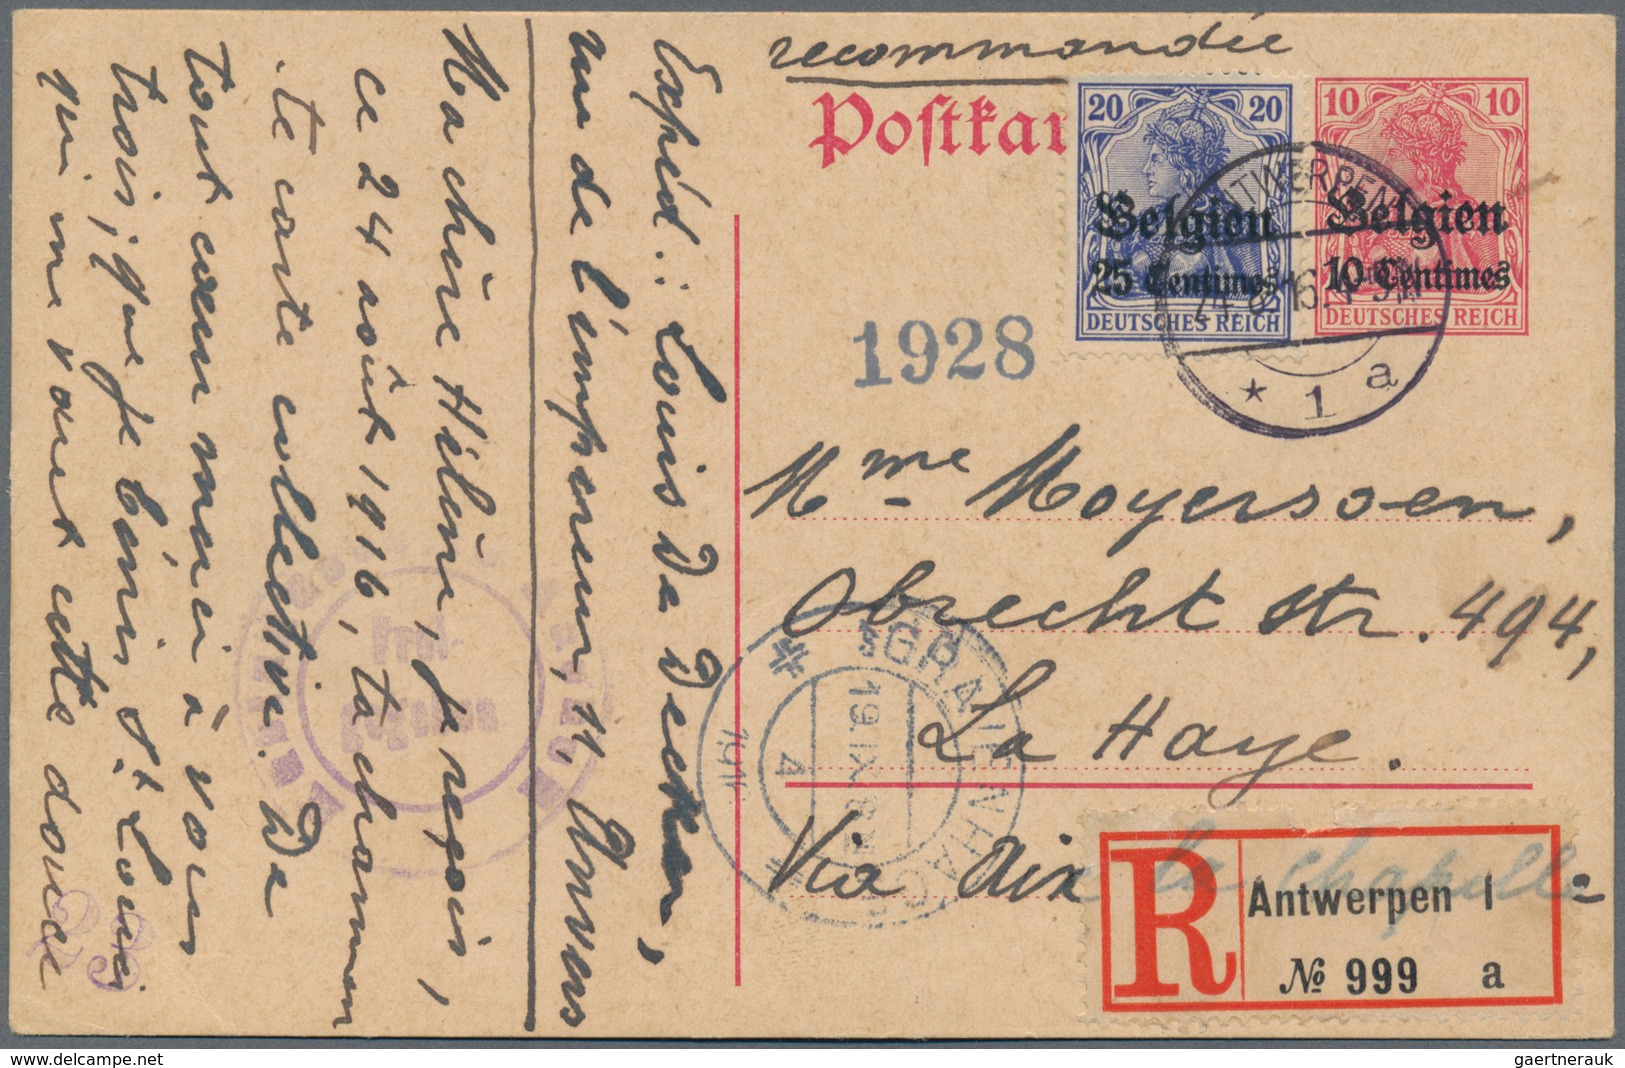 recommandée
Postkar
20 20
Belgien
25 Centimes
DEUTSCHES REICH
10 10
Belgien
10 Centimes
DEUTSCHES REICH
ANTWERPEN
* 1 a
1928
Mme Moyersoen,
Obrecht Str. 494,
La Haye.
Via Aix la Chapelle
R
Antwerpen 1
№ 999 a
'SGRAVENHAGE
4
Expéd.: Louis De Decker,
rue de l'empereur, 11, Anvers
Ma chère Hélène, je reçois,
ce 24 août 1916, ta charman
te carte collective. De
tout cœur merci à vous
trois, que je bénis. St. Louis
qui me vaut cette douce
Frei-
gegeben
23
gaertnerauk